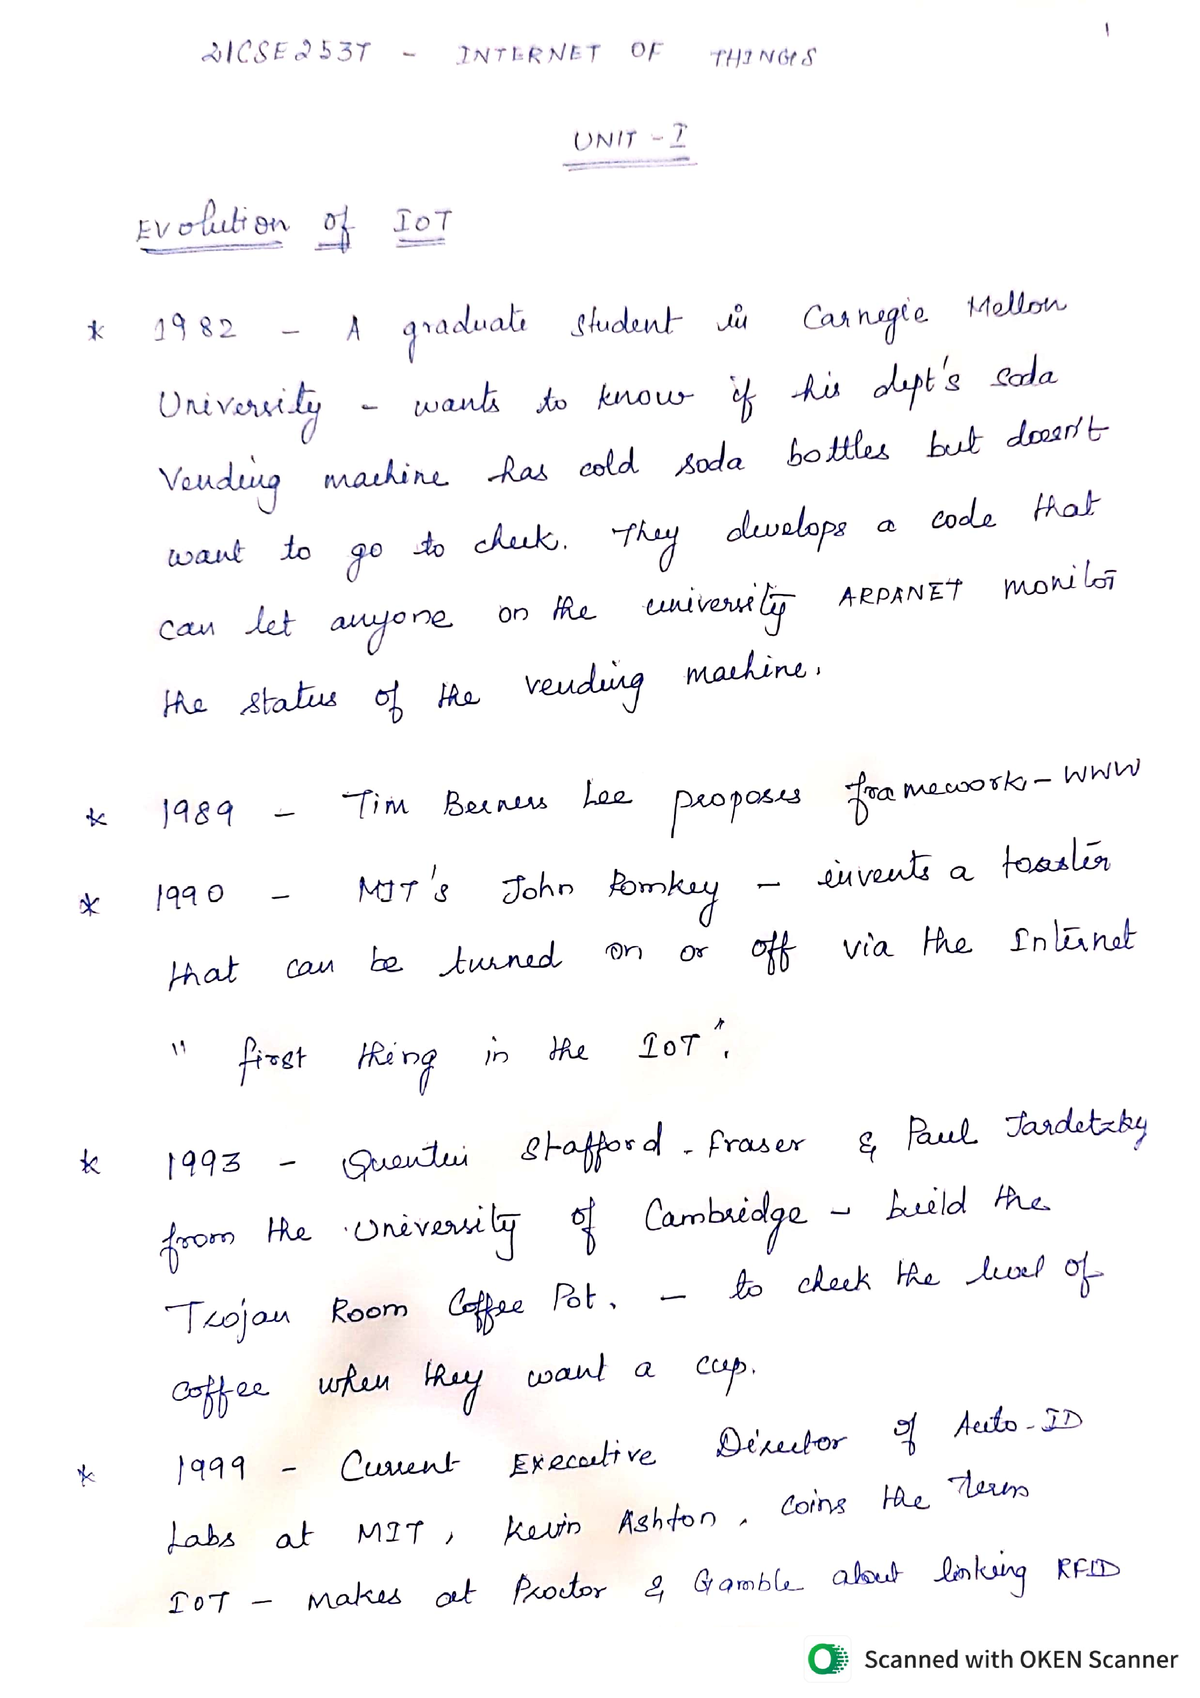 1
21CSE253T - INTERNET OF THINGS
UNIT - I
Evolution of IoT
* 1982 - A graduate student in Carnegie Mellon
University - wants to know if his dept's soda
Vending machine has cold soda bottles but doesn't
want to go to check. They develops a code that
can let anyone on the university ARPANET monitor
the status of the vending machine.
* 1989 - Tim Berners Lee proposes framework - WWW
* 1990 - MIT's John Romkey - invents a toaster
that can be turned on or off via the Internet
" first thing in the IoT".
* 1993 - Quentin Stafford-Fraser & Paul Jardetzky
from the University of Cambridge - build the
Trojan Room Coffee Pot. - to check the level of
coffee when they want a cup.
* 1999 - Current Executive Director of Auto-ID
Labs at MIT, Kevin Ashton, coins the term
IOT - makes at Proctor & Gamble about linking RFID
Scanned with OKEN Scanner